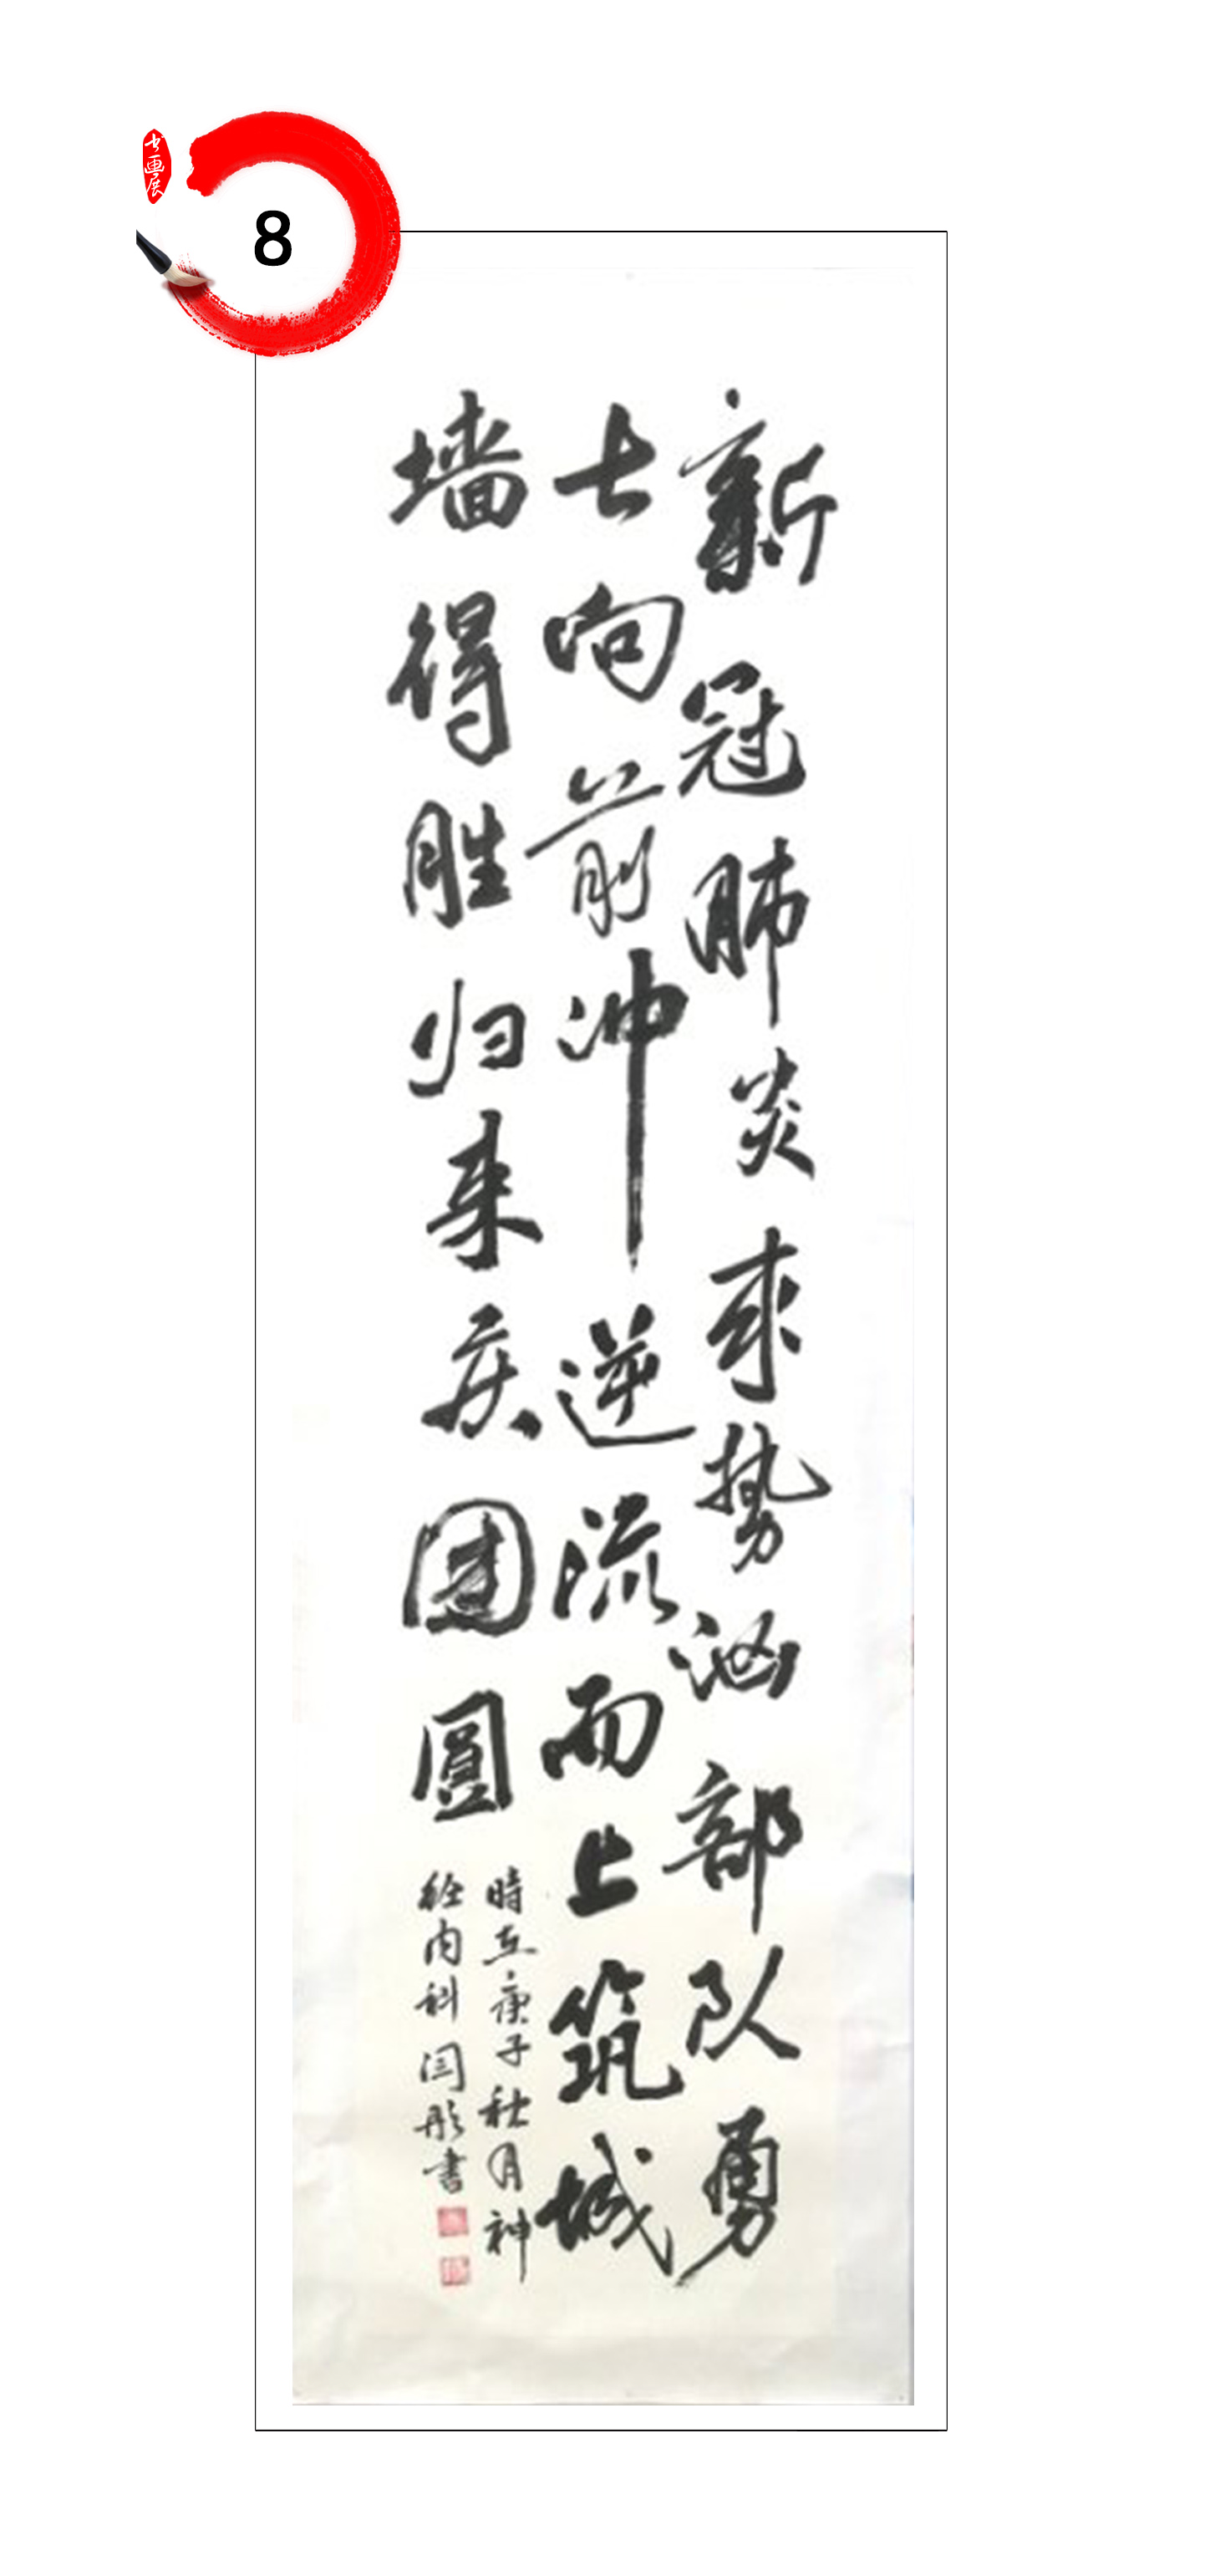 书画展
8
新冠肺炎来势汹部队勇
士向前冲逆流而上筑城
墙得胜归来庆团圆
時在庚子秋月神
经内科闫彤書